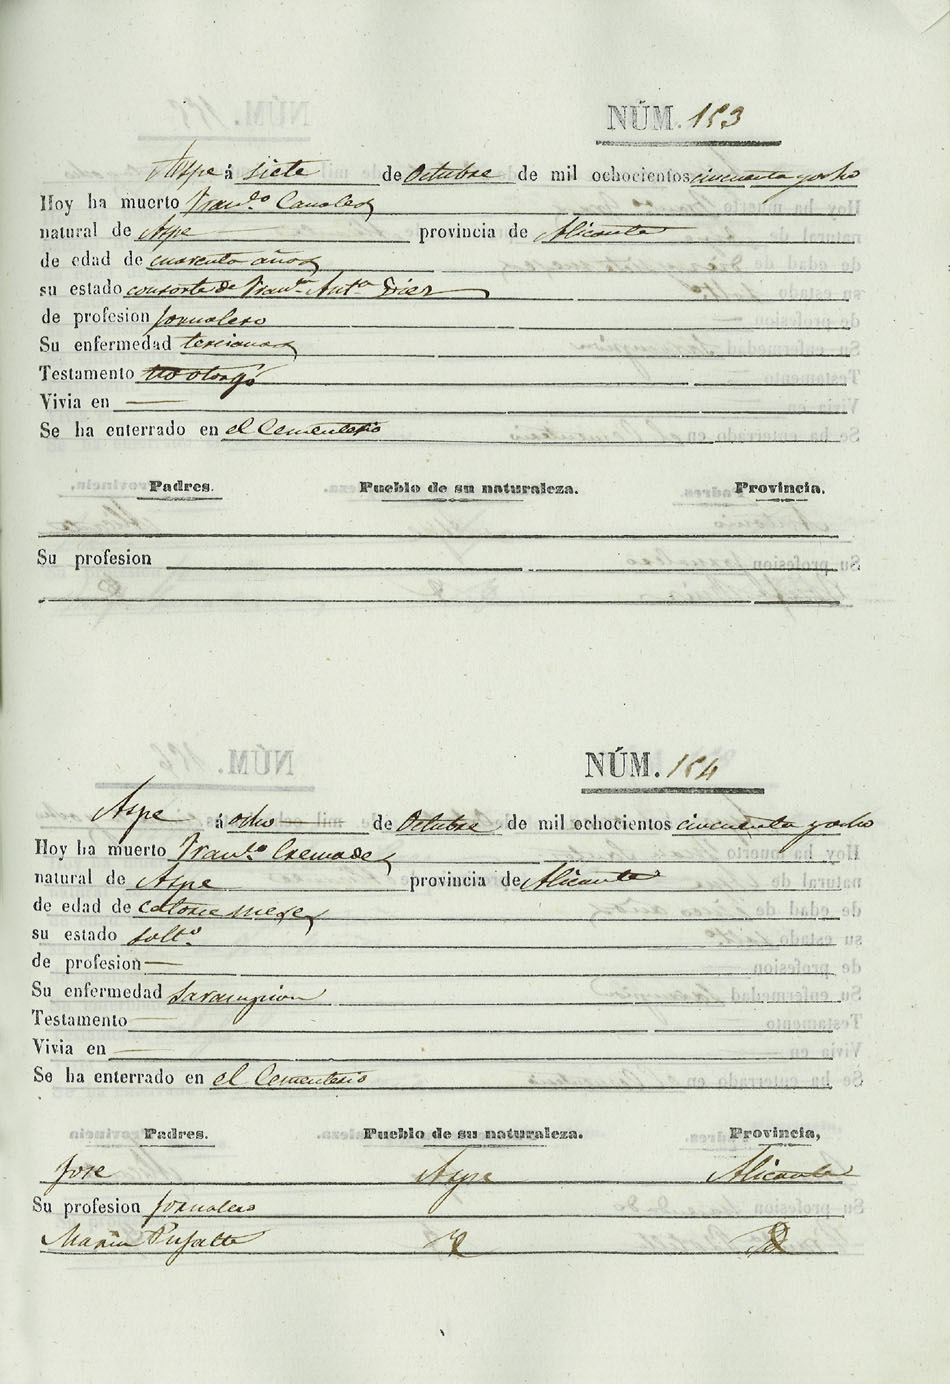 NÚM. 153
Aspe á siete de Octubre de mil ochocientos cincuenta y ocho
Hoy ha muerto Fran.co Canales
natural de Aspe provincia de Alicante
de edad de cuarenta años
su estado consorte de Fran.ca Ant.a Diez
de profesion jornalero
Su enfermedad tercianas
Testamento no otorgó
Vivia en —
Se ha enterrado en el Cementerio
Padres. Pueblo de su naturaleza. Provincia.
Su profesion
NÚM. 154
Aspe á ocho de Octubre de mil ochocientos cincuenta y ocho
Hoy ha muerto Fran.co Cremades
natural de Aspe provincia de Alicante
de edad de catorce meses
su estado solt.o
de profesion —
Su enfermedad sarampion
Testamento —
Vivia en —
Se ha enterrado en el Cementerio
Padres. Pueblo de su naturaleza. Provincia,
Jose Aspe Alicante
Su profesion jornalero
Maria Pujalte